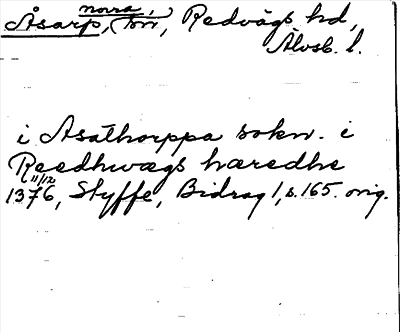 Åsarp, norra, sn, Redvägs hd,
Älvsb. l.
i Asathorppa sokn. i
Reedhwægs hæredhe
11/12
1376, Styffe, Bidrag 1, s. 165. orig.